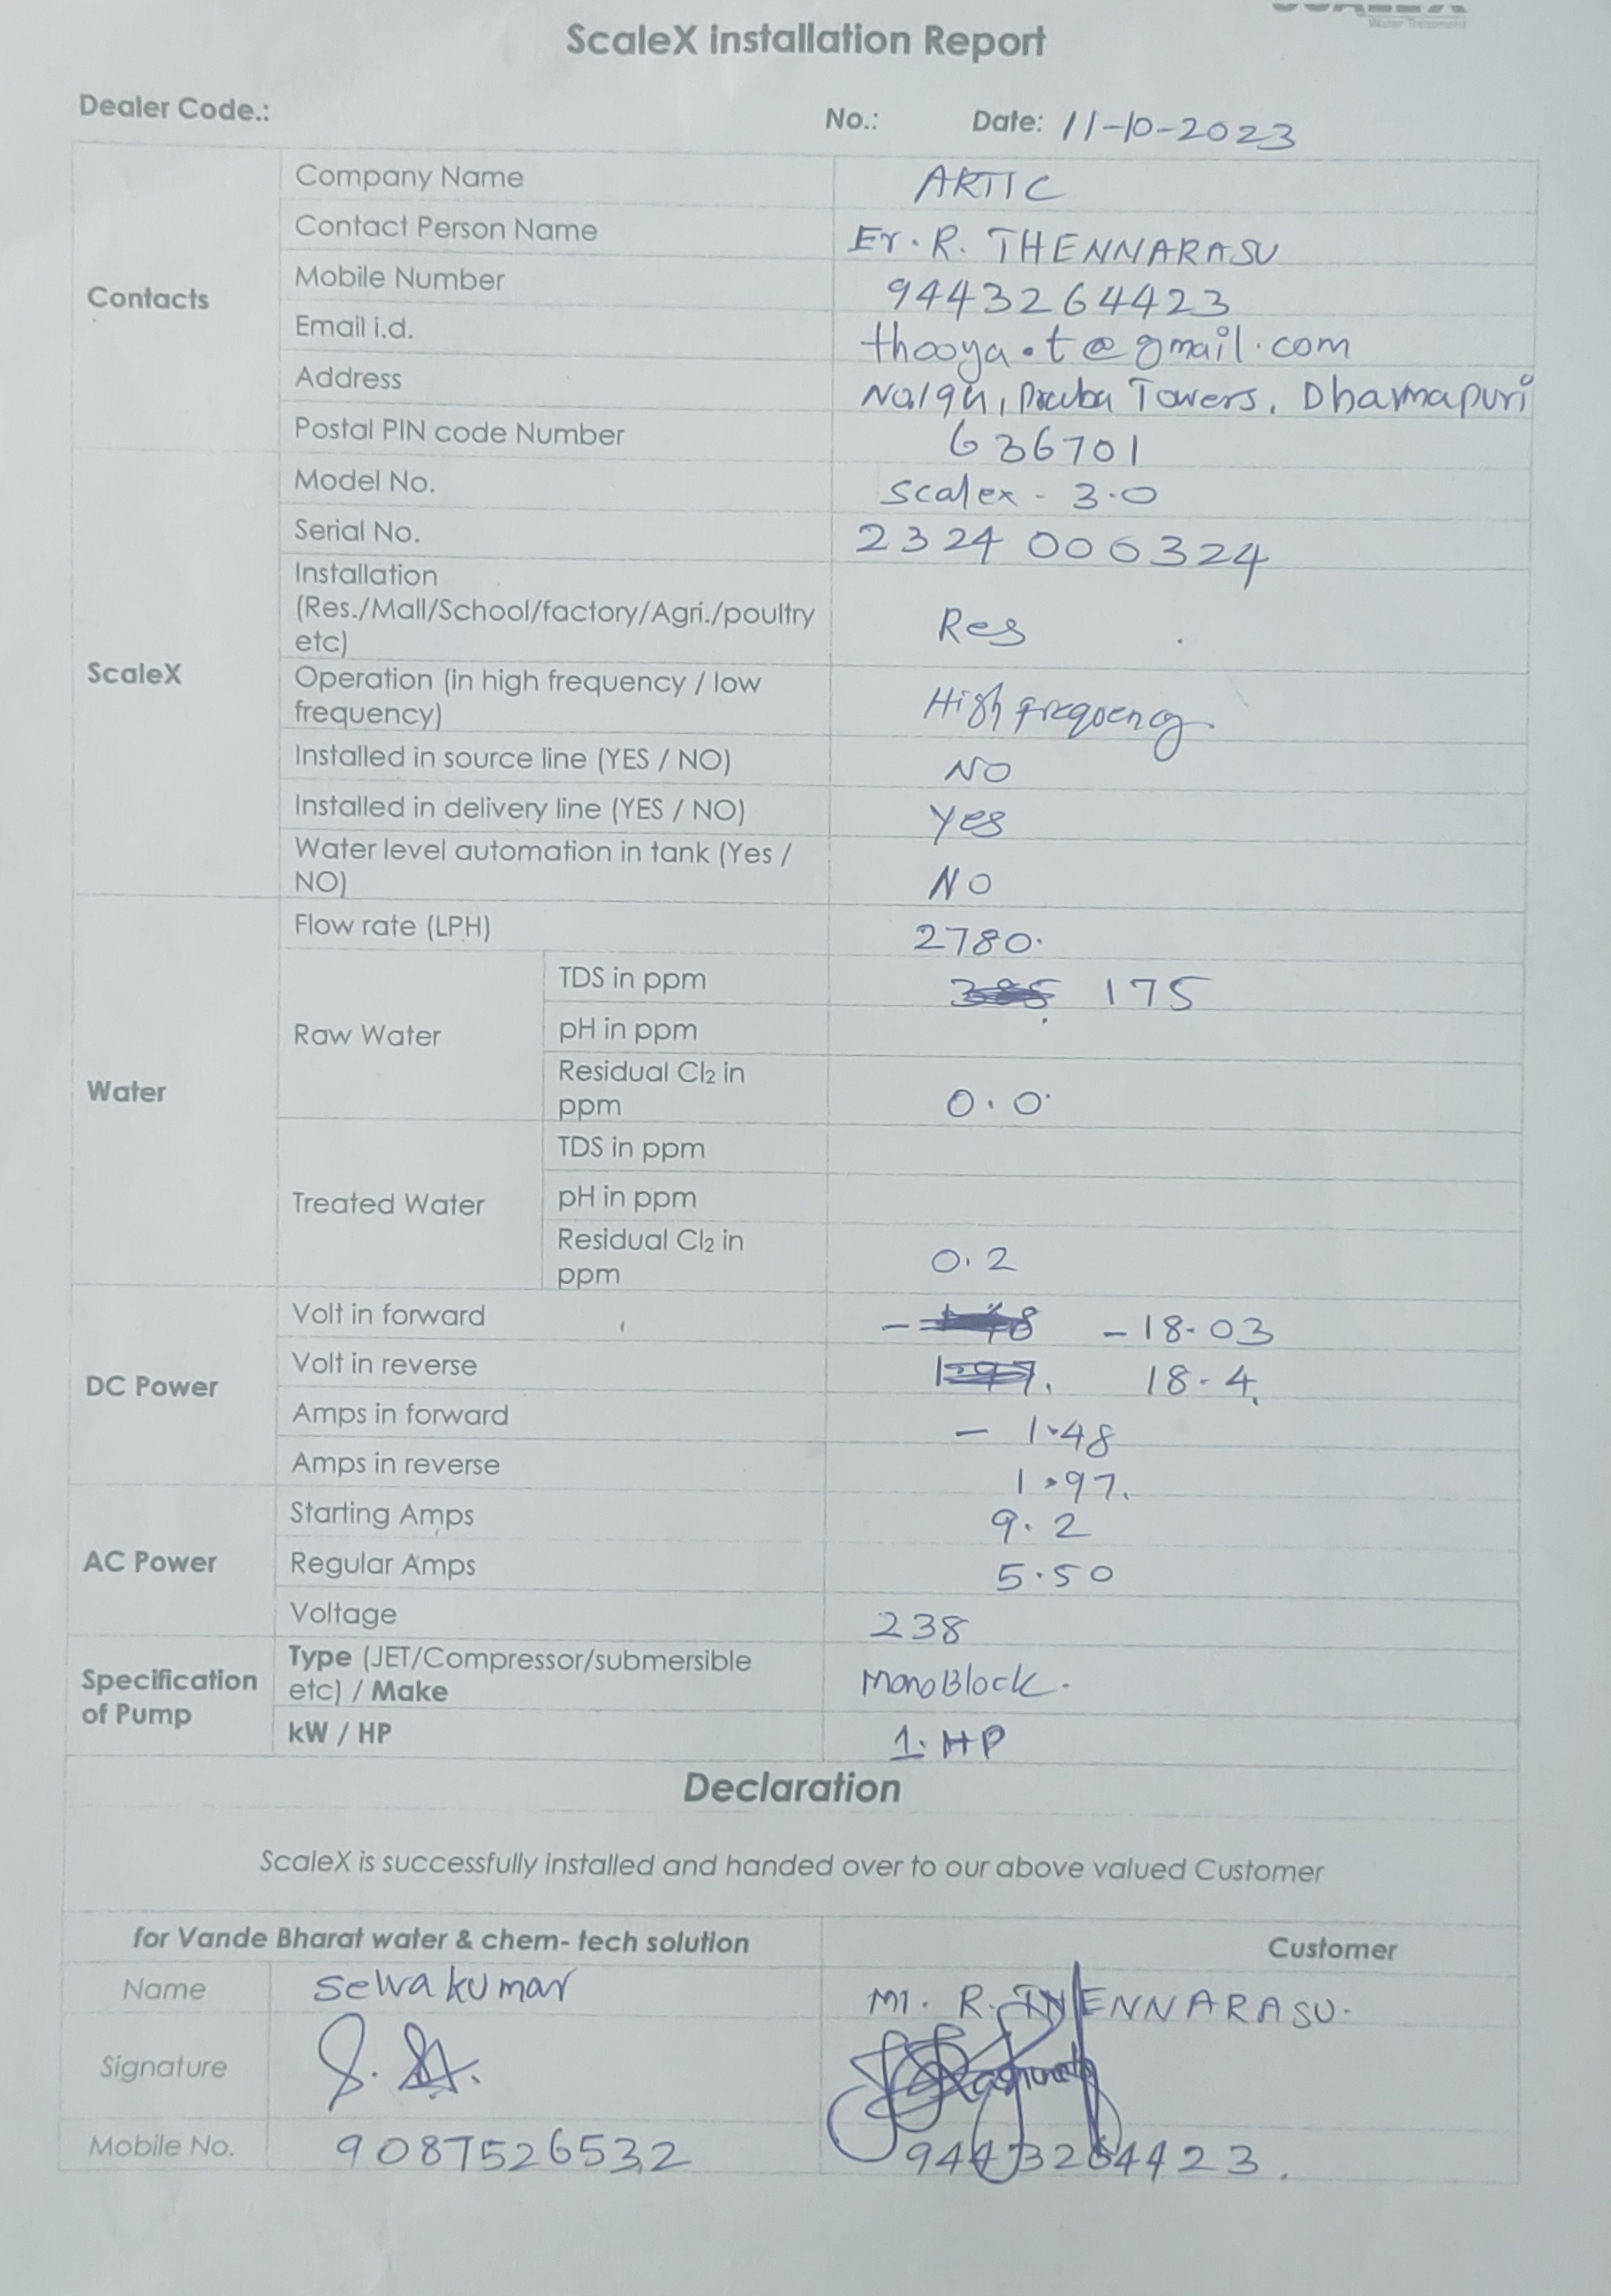 Water Treatment
ScaleX installation Report
Dealer Code.: No.: Date: 11-10-2023
Contacts
Company Name ARTIC
Contact Person Name Er. R. THENNARASU
Mobile Number 9443264423
Email i.d. thooya.t@gmail.com
Address Towers, Dharmapuri
Postal PIN code Number 636701
ScaleX
Model No. Scalex - 3.0
Serial No. 2324 000324
Installation
(Res./Mall/School/factory/Agri./poultry
etc) Res
Operation (in high frequency / low
frequency) High frequency.
Installed in source line (YES / NO) NO
Installed in delivery line (YES / NO) Yes
Water level automation in tank (Yes /
NO) NO
Water
Flow rate (LPH) 2780.
Raw Water
TDS in ppm 175
pH in ppm
Residual Cl2 in
ppm 0.0
Treated Water
TDS in ppm
pH in ppm
Residual Cl2 in
ppm 0.2
DC Power
Volt in forward - 18.03
Volt in reverse 18.4
Amps in forward - 1.48
Amps in reverse 1.97.
AC Power
Starting Amps 9.2
Regular Amps 5.50
Voltage 238
Specification
of Pump
Type (JET/Compressor/submersible
etc) / Make MonoBlock.
kW / HP 1. HP
Declaration
ScaleX is successfully installed and handed over to our above valued Customer
for Vande Bharat water & chem- tech solution Customer
Name Selvakumar R. THENNARASU.
Signature
Mobile No. 9087526532 9443264423.